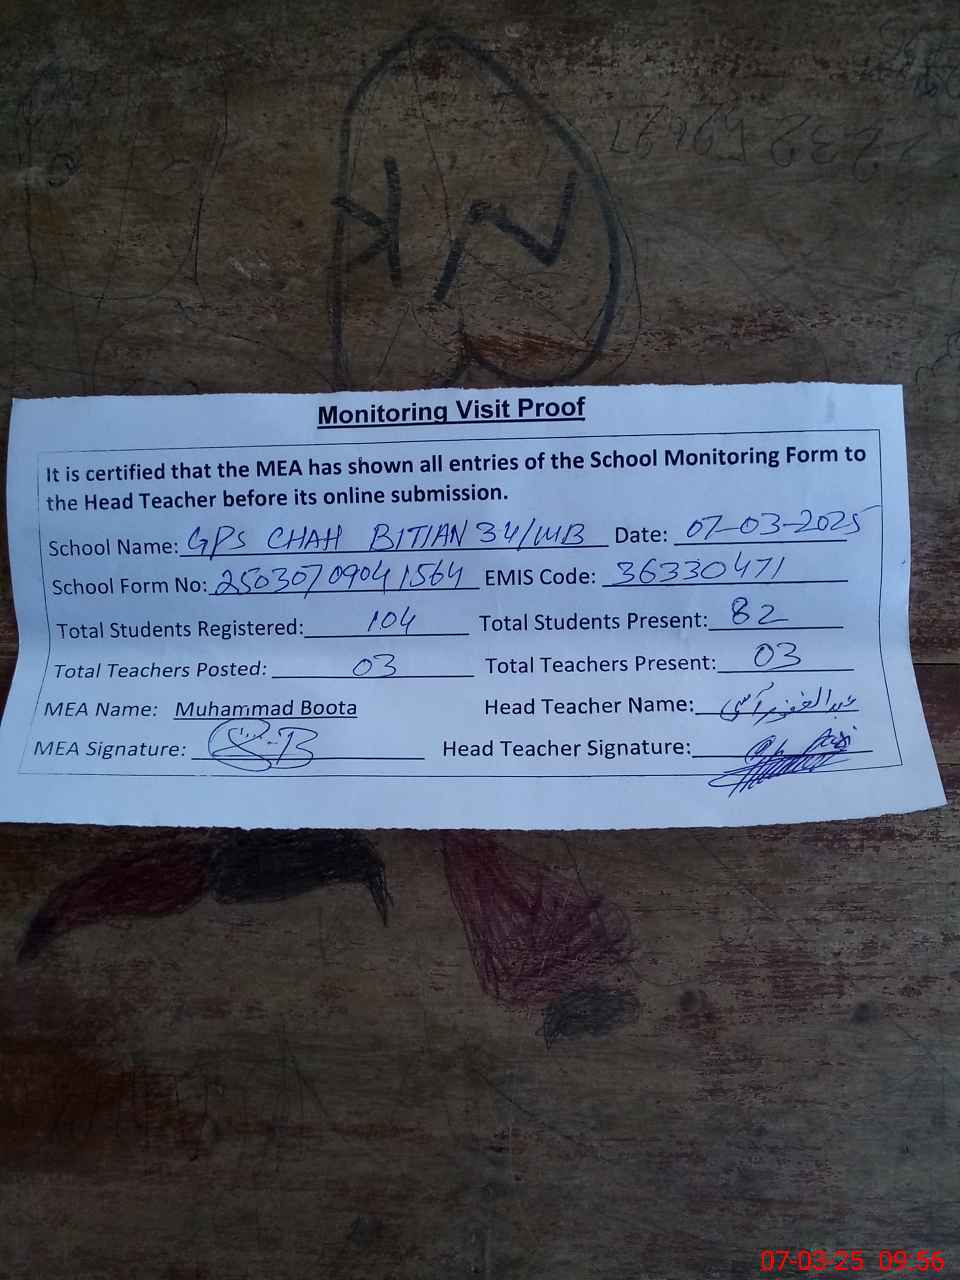 Monitoring Visit Proof
It is certified that the MEA has shown all entries of the School Monitoring Form to
the Head Teacher before its online submission.
School Name: GPS CHAH BITIAN 34/WB Date: 07-03-2025
School Form No: 25030709041564 EMIS Code: 36330471
Total Students Registered: 104 Total Students Present: 82
Total Teachers Posted: 03 Total Teachers Present: 03
MEA Name: Muhammad Boota Head Teacher Name: عبدالغفور آسی
MEA Signature: Head Teacher Signature:
07-03-25 09:56